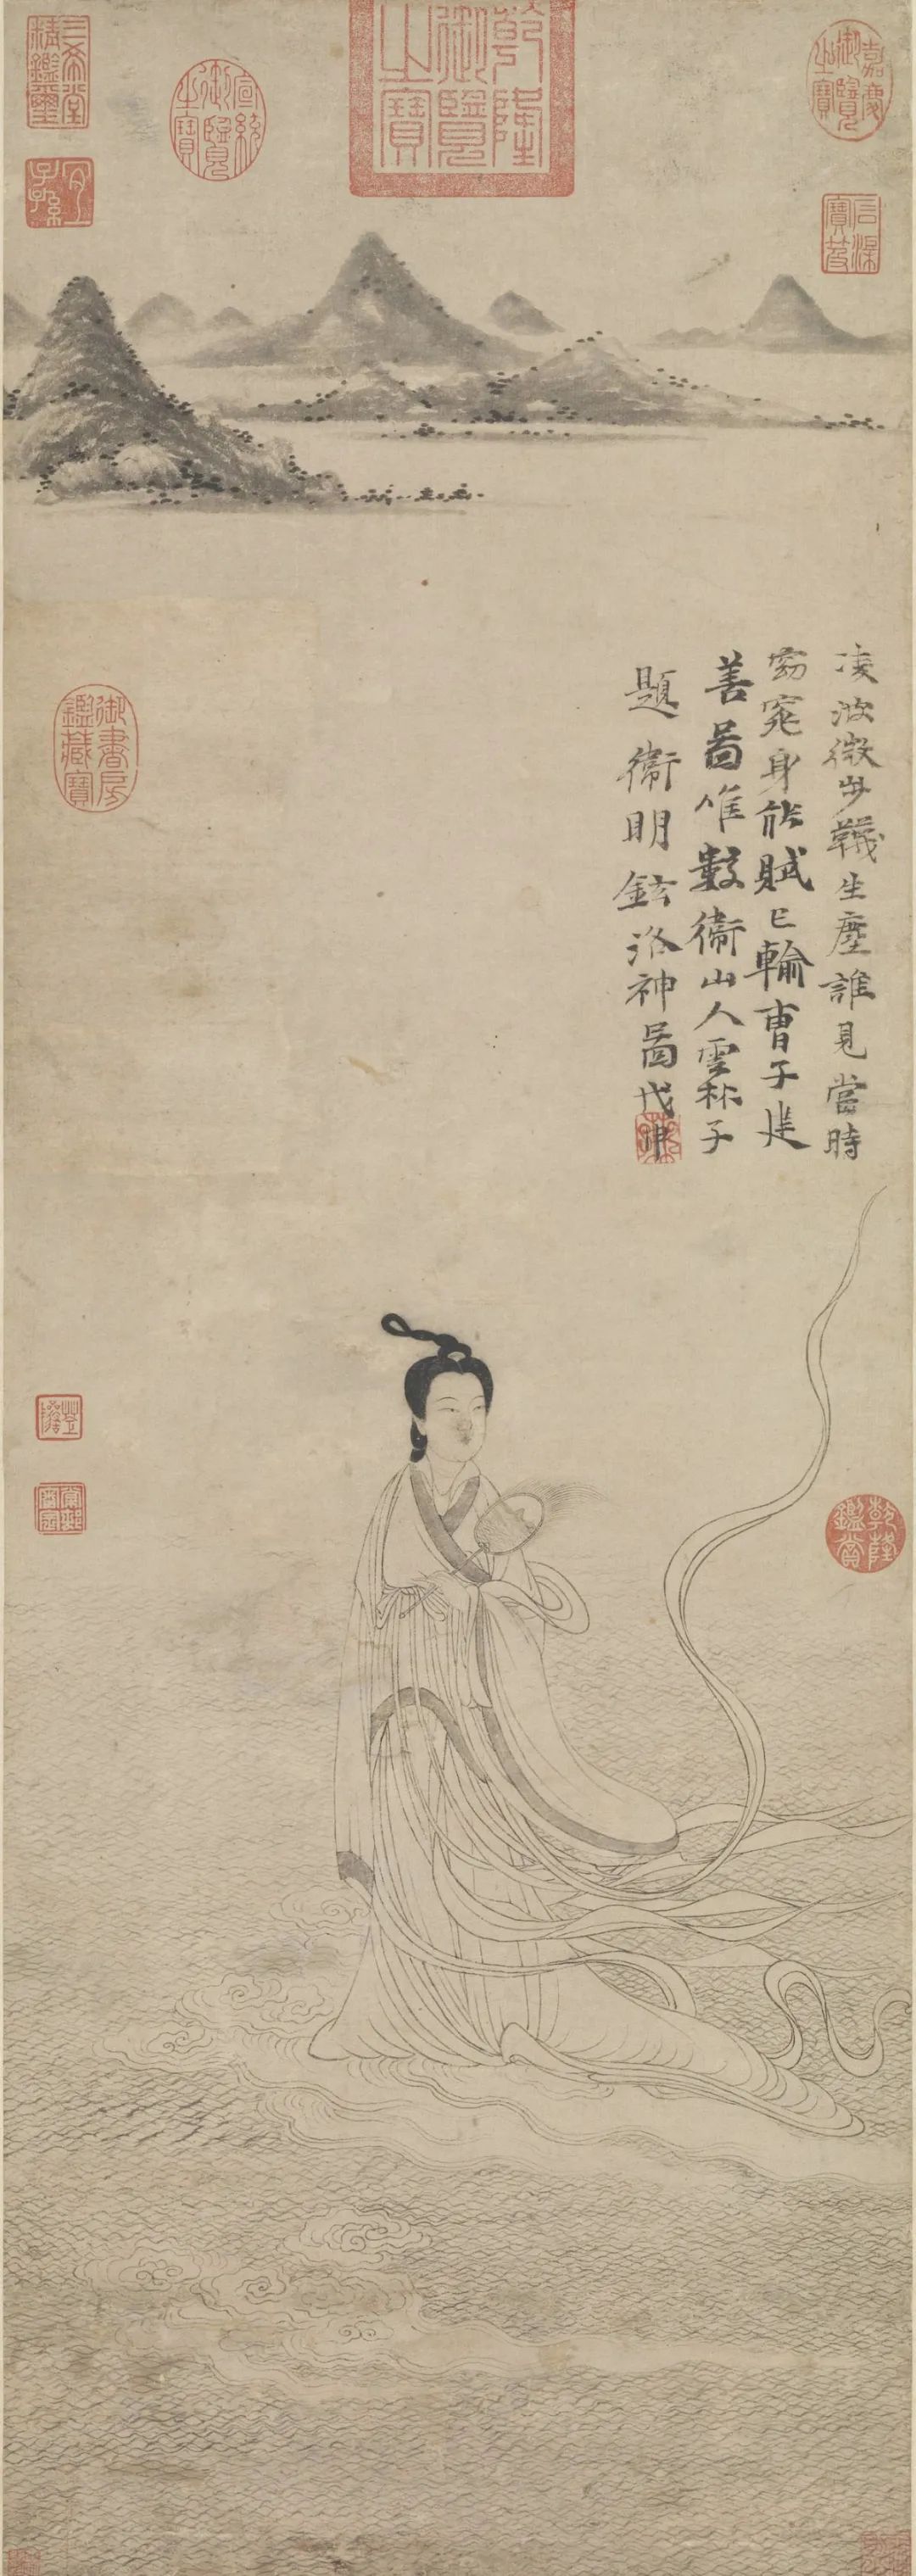 嘉慶御覽之寶
石渠寶笈
乾隆御覽之寶
宣統御覽之寶
三希堂精鑑璽
宜子孫
凌波微步韈生塵誰見當時
窈窕身能賦已輸曹子建
善啚唯數衛山人雲林子
題衛明鉉洛神啚戊申
御書房鑑藏寶
乾隆鑑賞